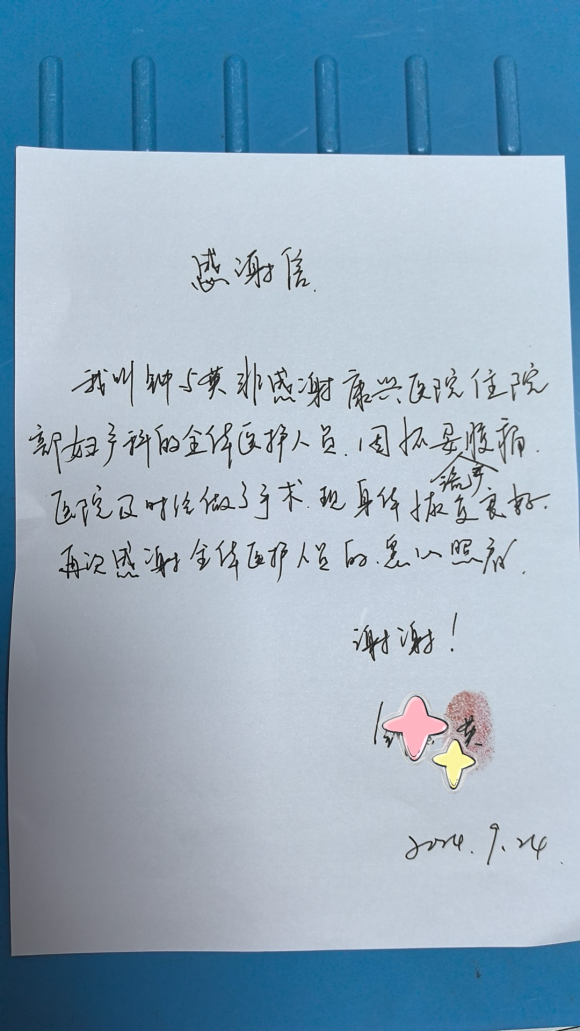 感谢信
我叫钟与英非感谢康兴医院住院
部妇产科的全体医护人员.因怀孕腹痛.
流产
医院及时给做了手术.现身体恢复良好.
再次感谢全体医护人员的.悉心照顾.
谢谢!
英
2024.9.24